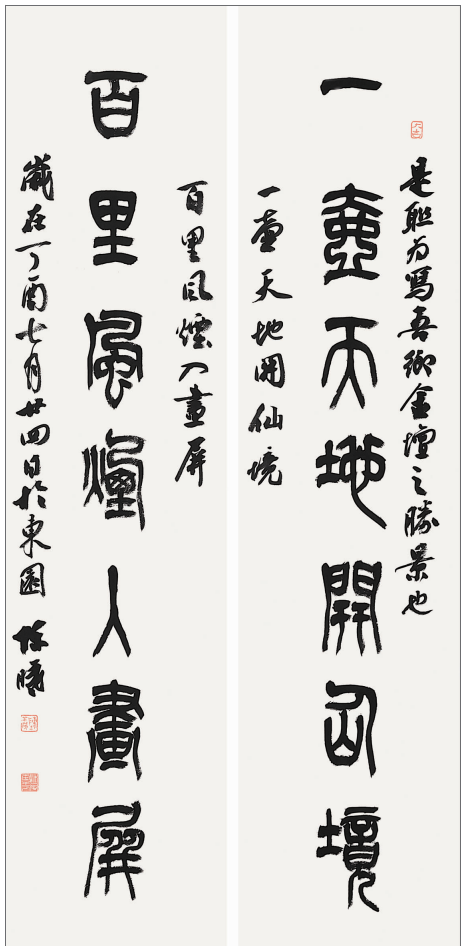 是聯為寫吾鄉金壇之勝景也
一壺天地開仙境
一壺天地開仙境
百里風煙入畫屏
百里風煙入畫屏
歲在丁酉七月廿四日於東園